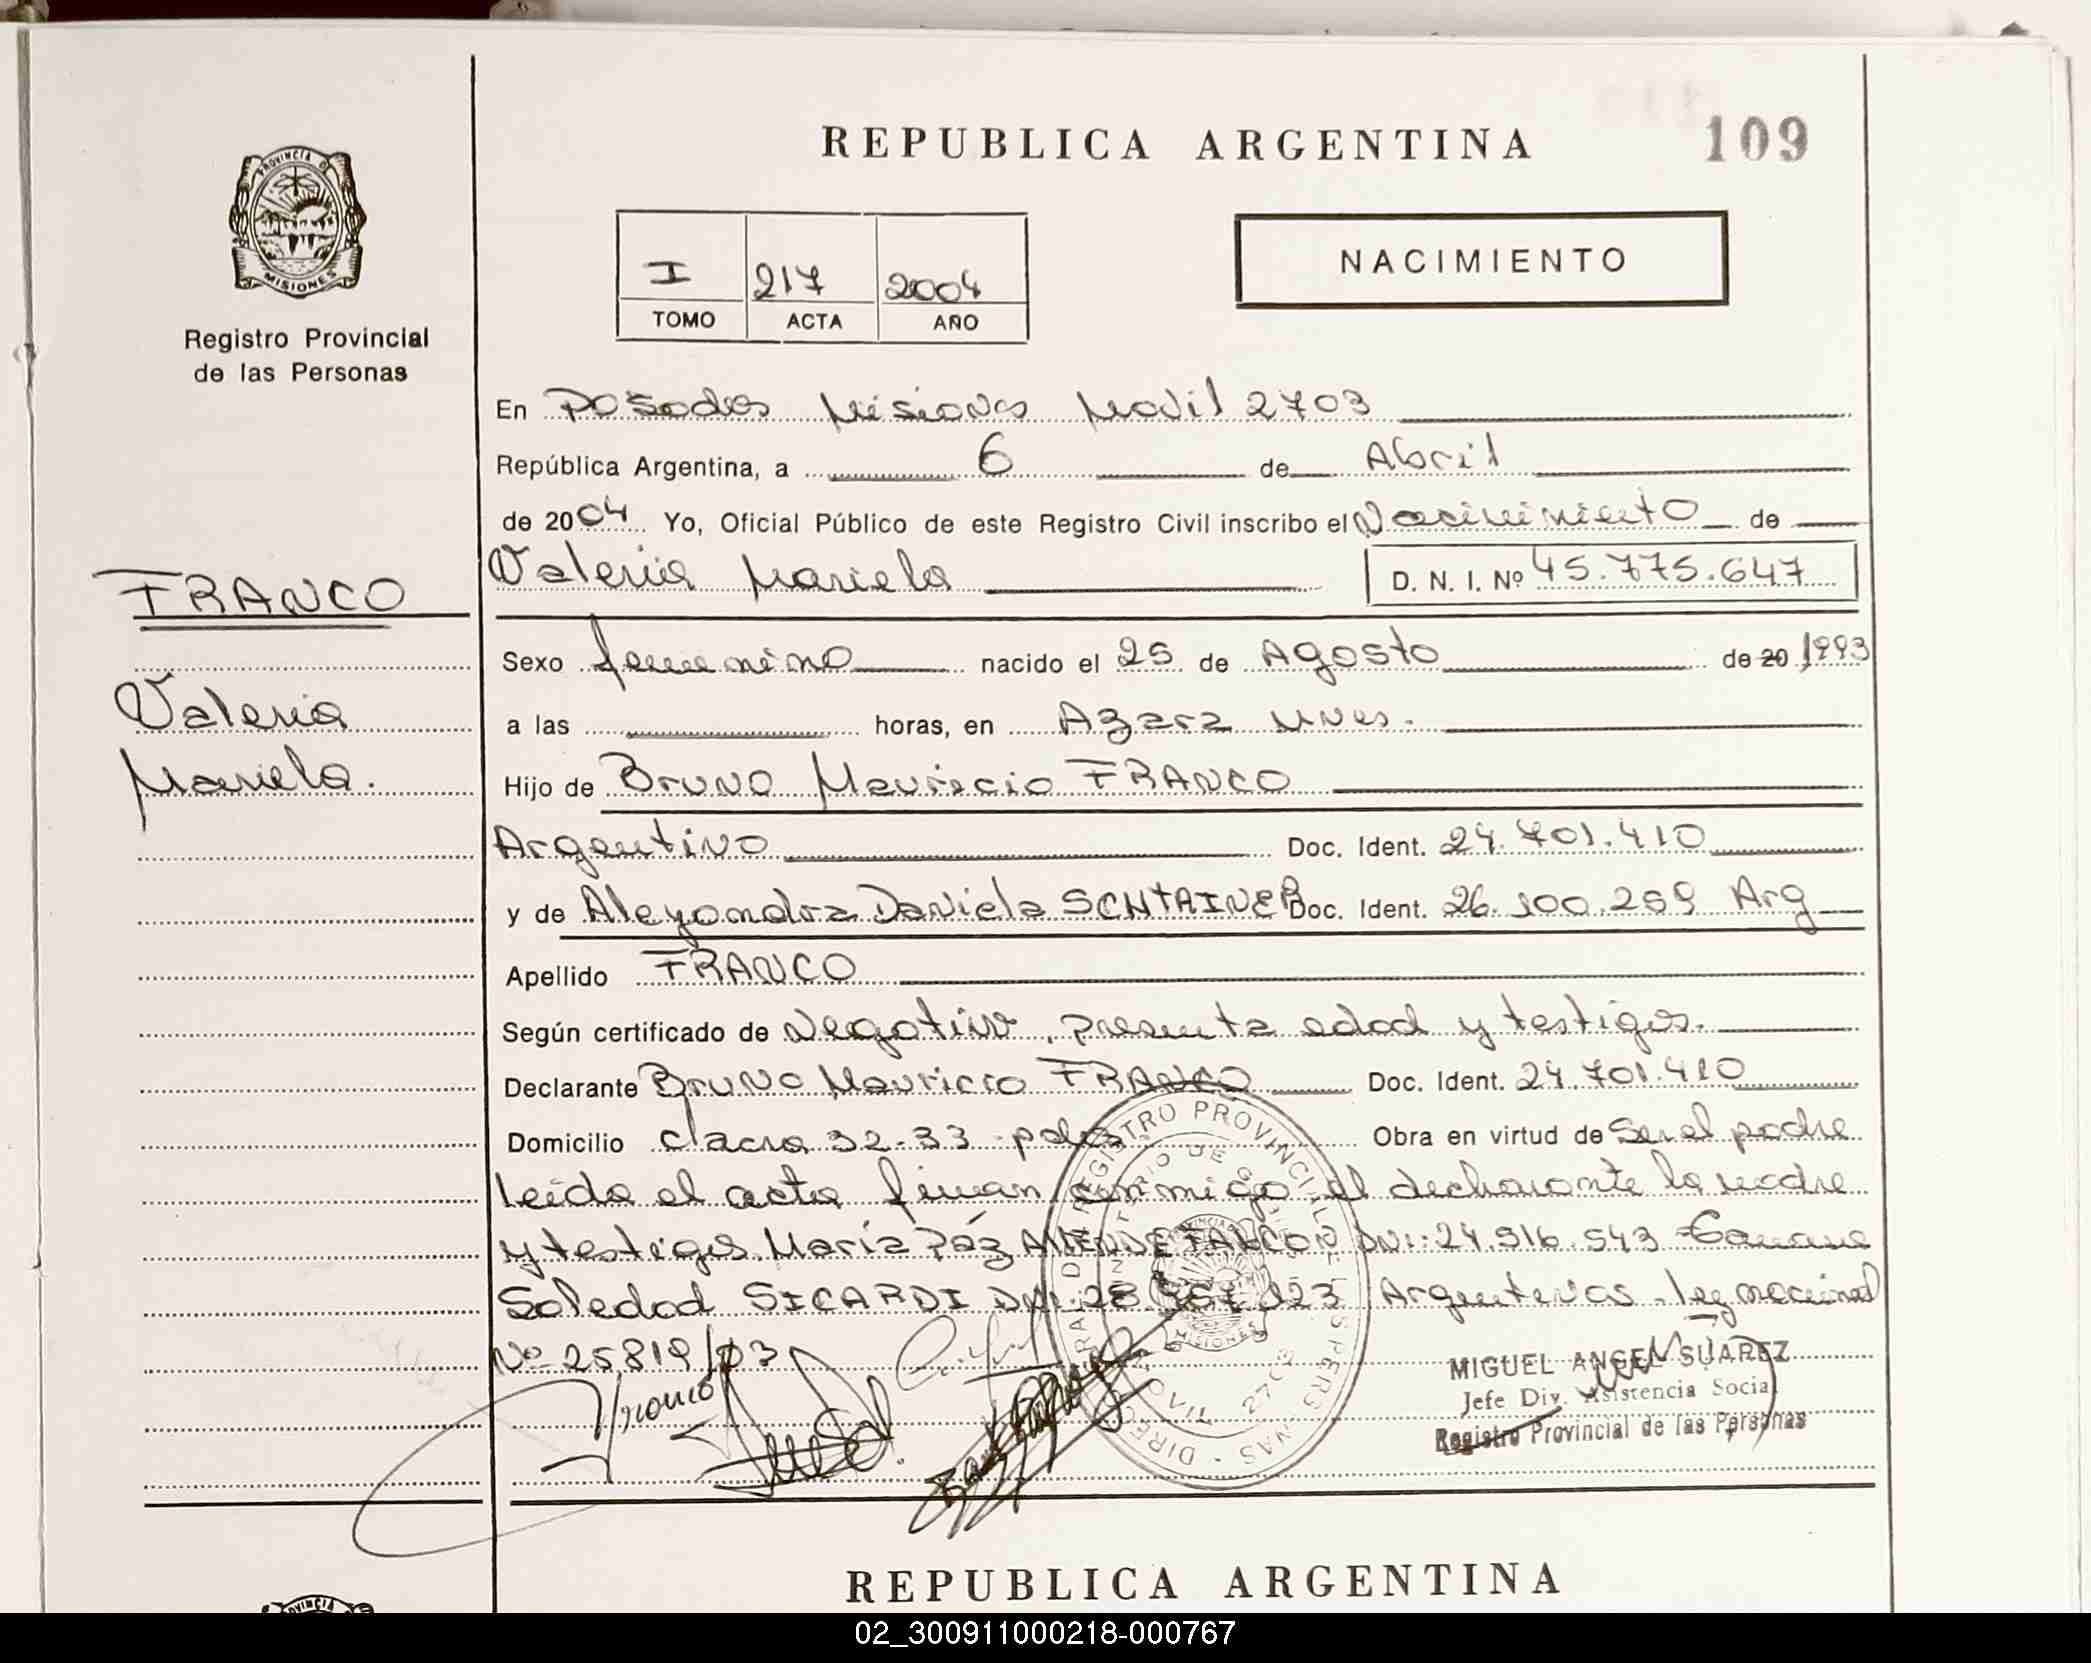 REPUBLICA ARGENTINA
109
PROVINCIA DE
MISIONES
Registro Provincial
de las Personas
I 217 2004
TOMO ACTA AÑO
NACIMIENTO
En Posadas Misiones Movil 2703
República Argentina, a 6 de Abril
de 2004 Yo, Oficial Público de este Registro Civil inscribo el Nacimiento de
Valeria Mariela D. N. I. Nº 45.775.647
FRANCO
Valeria
Mariela.
Sexo femenino nacido el 25 de Agosto de 20 1993
a las horas, en Azara Mnes.
Hijo de Bruno Mauricio FRANCO
Argentino Doc. Ident. 24.701.410
y de Aleyandra Daniela SCHTAINER Doc. Ident. 26.100.259 Arg
Apellido FRANCO
Según certificado de Negativo, presenta edad y testigos.
Declarante Bruno Mauricio FRANCO Doc. Ident. 24.701.410
Domicilio chacra 32-33 pdas. Obra en virtud de Ser el padre
leida el acta firman conmigo el declarante la madre
y testigos María Páz DNI: 24.916.543
Soledad SICARDI DNI: 28 123 Argentinas. ley nacional
Nº 25819/03
Franco
DIRECCION GRAL. DEL REGISTRO PROVINCIAL DE LAS PERSONAS
MINISTERIO DE GOBIERNO
2703
MISIONES
MIGUEL ANGEL SUAREZ
Jefe Div. Asistencia Social
Registro Provincial de las Personas
REPUBLICA ARGENTINA
PROVINCIA
02_300911000218-000767